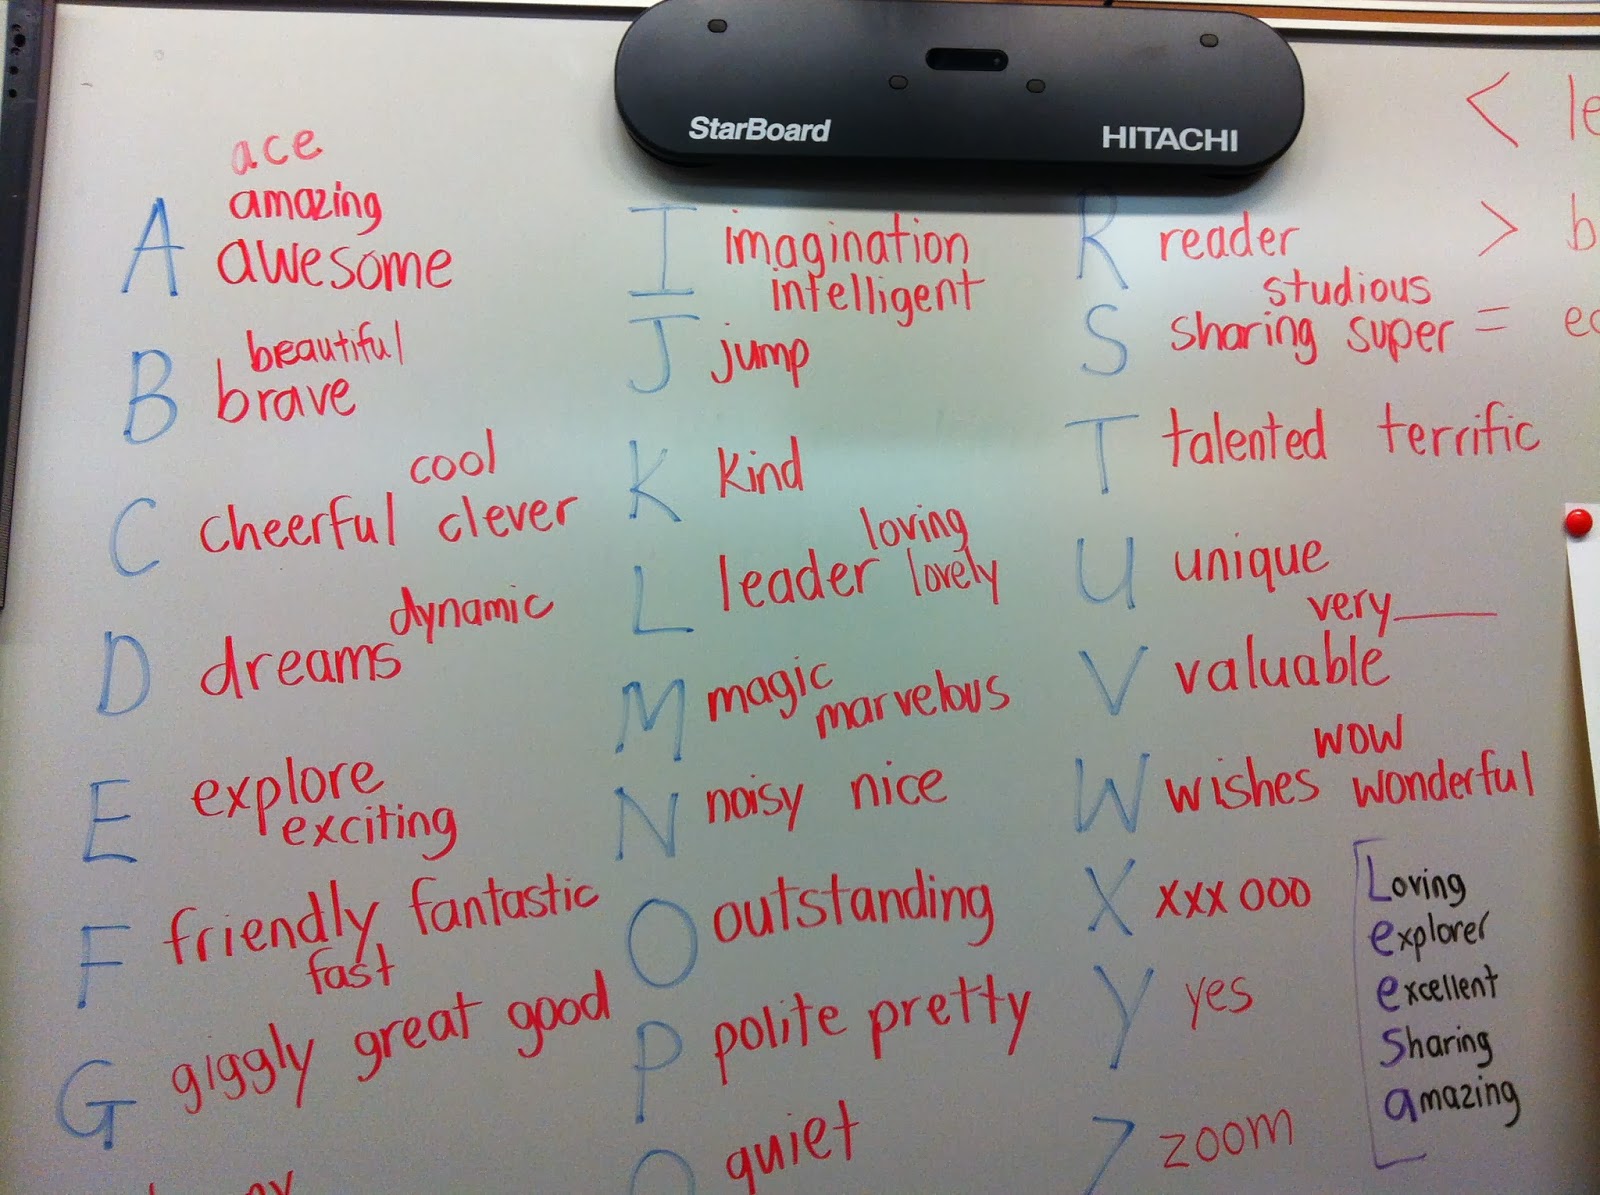 StarBoard HITACHI
ace
amazing
A awesome
beautiful
B brave
cool
C cheerful clever
dynamic
D dreams
E explore
exciting
F friendly fantastic
fast
G giggly great good
I imagination
intelligent
J jump
K kind
loving
L leader lovely
M magic
marvelous
N noisy nice
O outstanding
P polite pretty
quiet
R reader
studious
S sharing super
T talented terrific
U unique
very____
V valuable
wow
W wishes wonderful
X xxx ooo
Y yes
Z zoom
<
>
=
Loving
explorer
excellent
Sharing
amazing